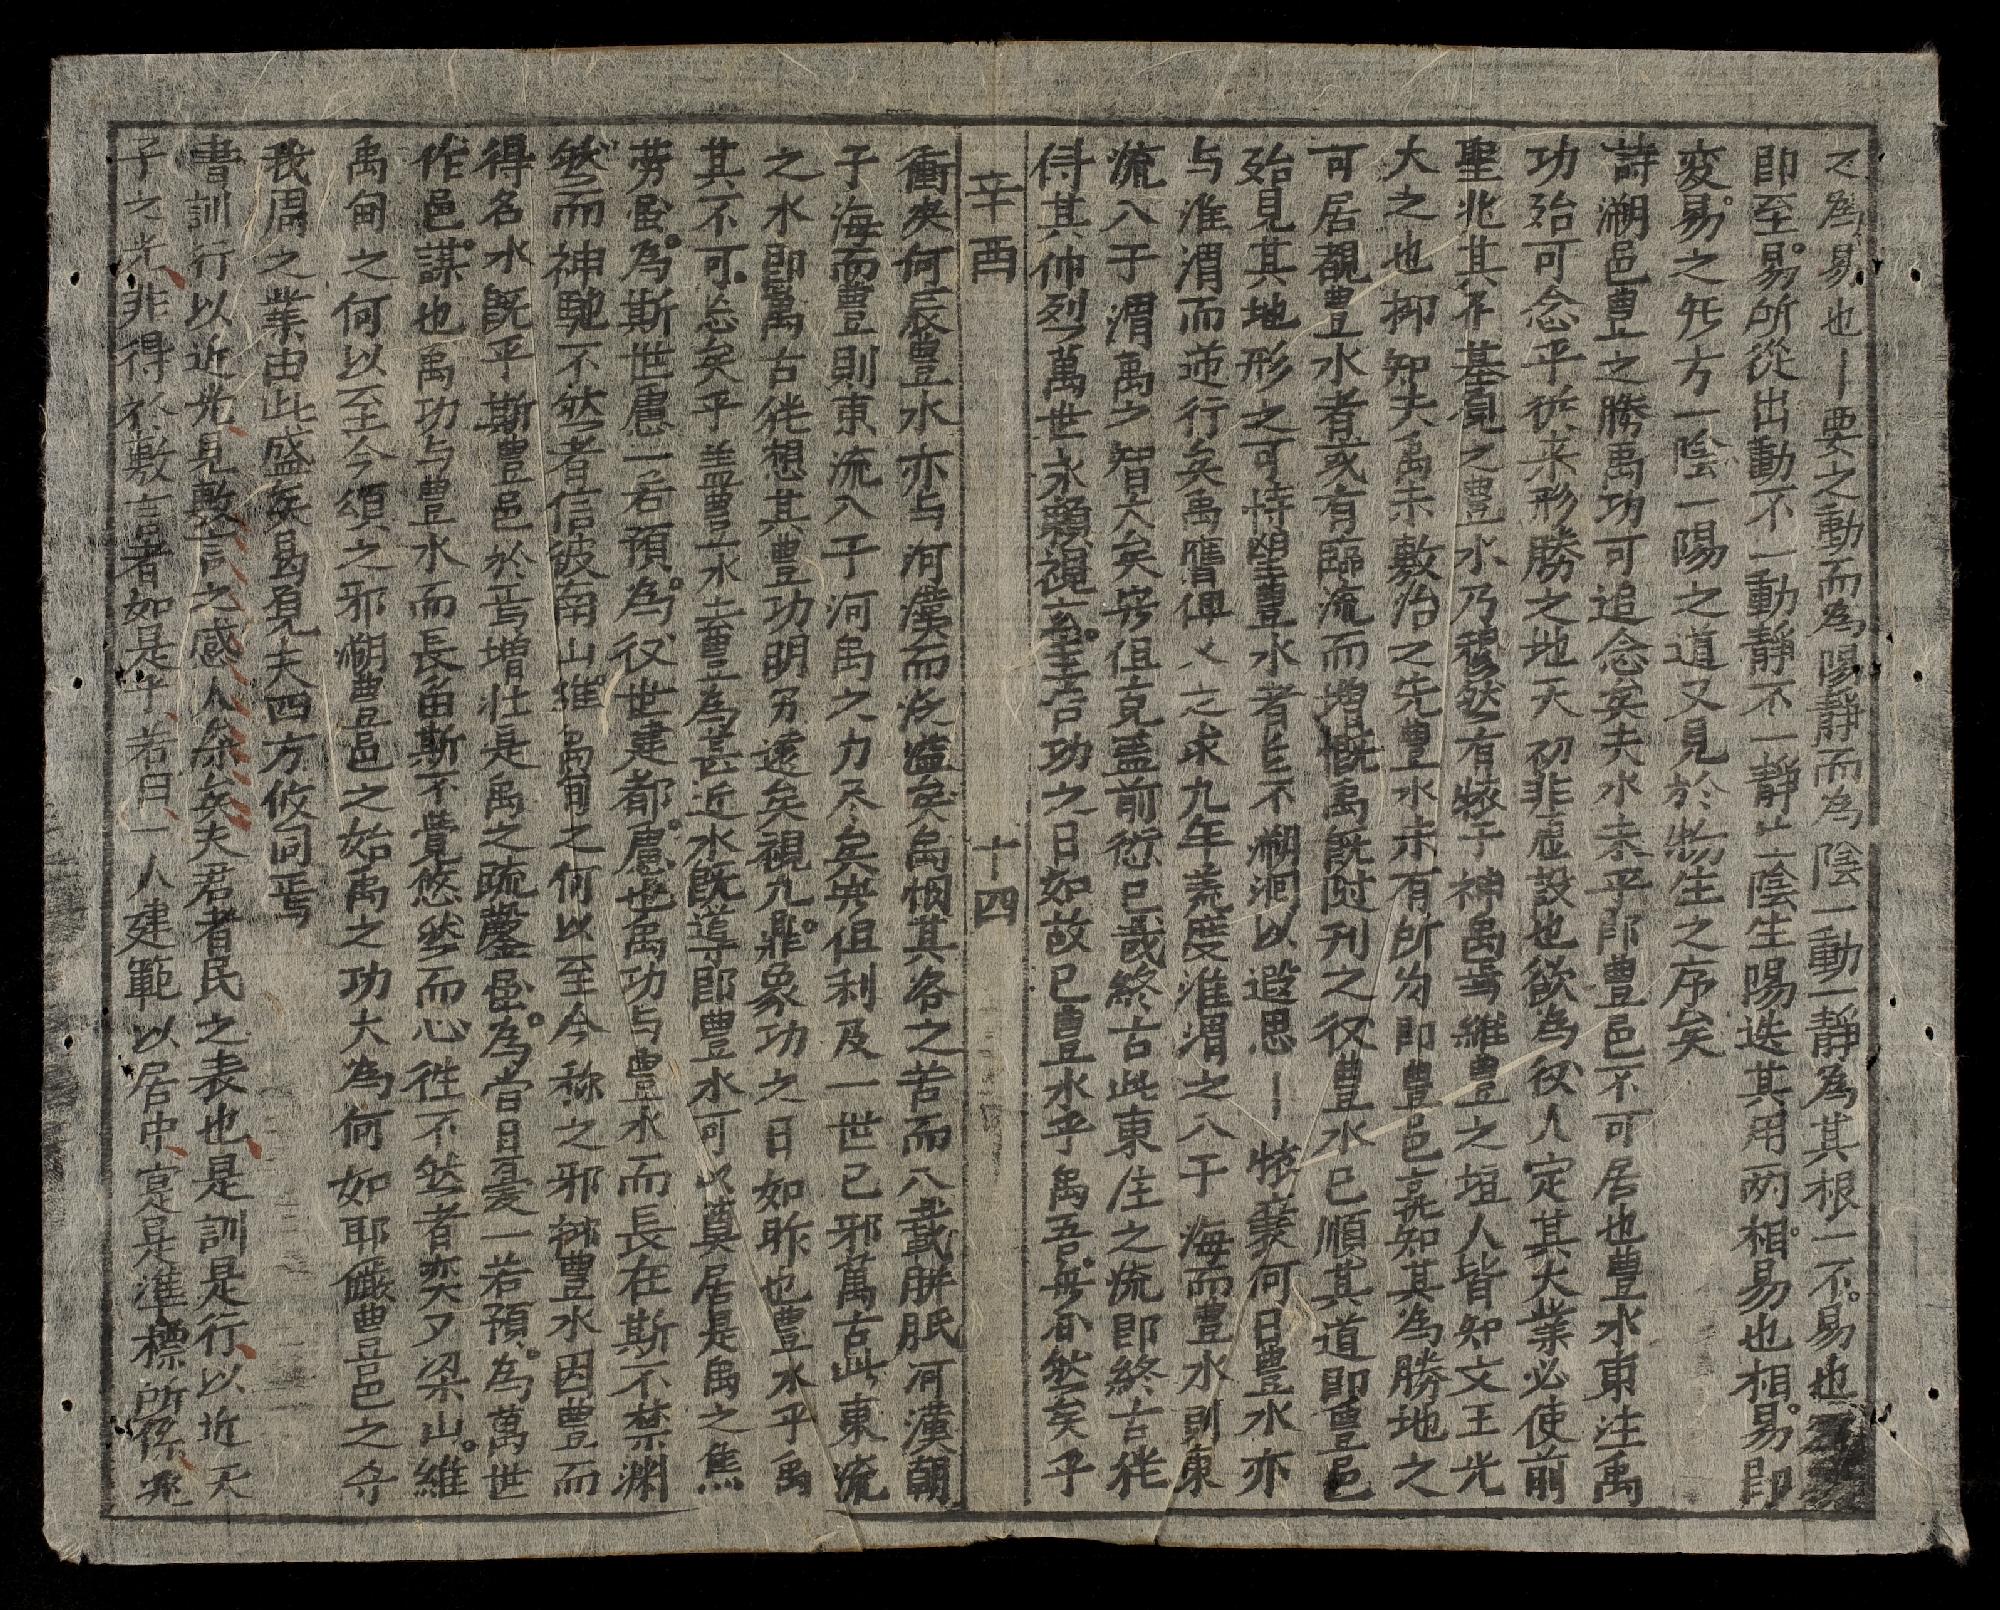 之為易也一要之動而為陽靜而為陰一動一靜為其根一不易也
即至易所從出動不一動靜不一靜生陰生陽迭其用兩相易也相易即
変易之死方一陰一陽之道又見於物生之序矣
詩溯邑豊之勝禹功可追念矣夫水未平即豊邑不可居也豊水東注禹
功殆可念乎從来形勝之地天初非虛設也欲為後人定其大業必使前
聖兆其丕基見之豊水乃穆然有懷于神禹焉維豊之垣人皆知文王光
大之也抑知夫禹未敷治之先豊水未有所匀即豊邑之知其為勝地之
可居覩豊水者或有臨流而增慨禹既隨刊之後豊水已順其道即豊邑
殆見其地形之可恃望豊水者能不溯洄以遐思一懷襄何日豊水亦
与淮渭而並行矣禹膺俾乂之求九年荒度淮渭之入于海而豊水則東
流入于渭禹之智大矣豈但克盖前愆已哉終古此東注之流即終古能
待其仲烈萬世永賴視吉功之日如故已豊水乎禹吾無间然矣子
辛酉 十四
衝夾何辰豊水亦与河漢而泛濫矣禹悯其咨之苦而八載胼胝河漢朝
于海而豊則東流入于河禹之力尽矣豈但利及一世已邪萬古此東流
之水即萬古能想其豊功明另遠矣視九鼎象功之日如昨也豊水乎禹
其不可忘矣乎盖豊水去豊為甚近水既導即豊水可以奠居是禹之焦
劳虽為斯世慮一若預為後世建都慮也禹功与豊水而長在斯不禁渊
然而神馳不然者信彼南山維禹甸之何以至今称之邪都豊水因豊而
得名水既平斯豊邑於焉增壮是禹之疏鑿虽為當日憂一若預為萬世
作邑謀也禹功与豊水而長留斯不覺悠然而心徃不然者奕奕梁山維
禹甸之何以至今頌之邪溯豊邑之始禹之功大為何如耶儼豊邑之今
我周之業由此盛矣曷覓夫四方攸同焉
書訓行以近光見敷言之感人深矣夫君者民之表也是訓是行以近天
子之光非得於敷言者如是乎若曰一人建範以居中寔是準標所係兆